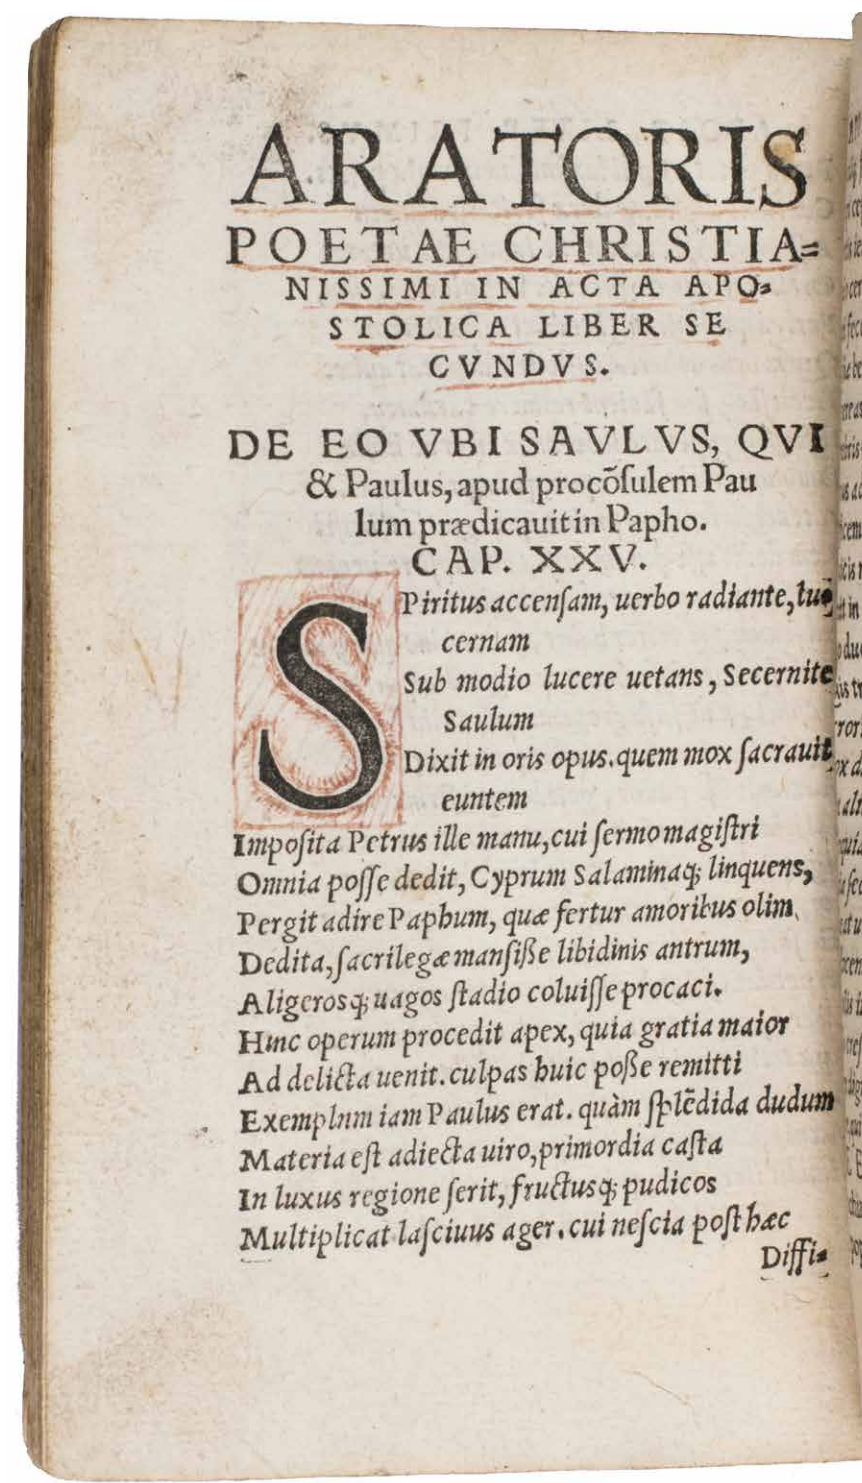 ARATORIS
POETAE CHRISTIA=
NISSIMI IN ACTA APO=
STOLICA LIBER SE
CVNDVS.
DE EO VBI SAVLVS, QVI
& Paulus, apud procõſulem Pau
lum prædicauit in Papho.
CAP. XXV.
SPiritus accenſam, uerbo radiante, lu
cernam
Sub modio lucere uetans, Secernite
Saulum
Dixit in oris opus. quem mox ſacrauit
euntem
Impoſita Petrus ille manu, cui ſermo magiſtri
Omnia poſſe dedit, Cyprum Salaminaq; linquens,
Pergit adire Paphum, quæ fertur amoribus olim
Dedita, ſacrilegæ manſiſſe libidinis antrum,
Aligerosq; uagos ſtadio coluiſſe procaci.
Hinc operum procedit apex, quia gratia maior
Ad delicta uenit. culpas huic poſſe remitti
Exemplum iam Paulus erat. quàm ſplẽdida dudum
Materia eſt adiecta uiro, primordia caſta
In luxus regione ſerit, fructusq; pudicos
Multiplicat laſciuus ager. cui neſcia poſt hæc
Diffi=